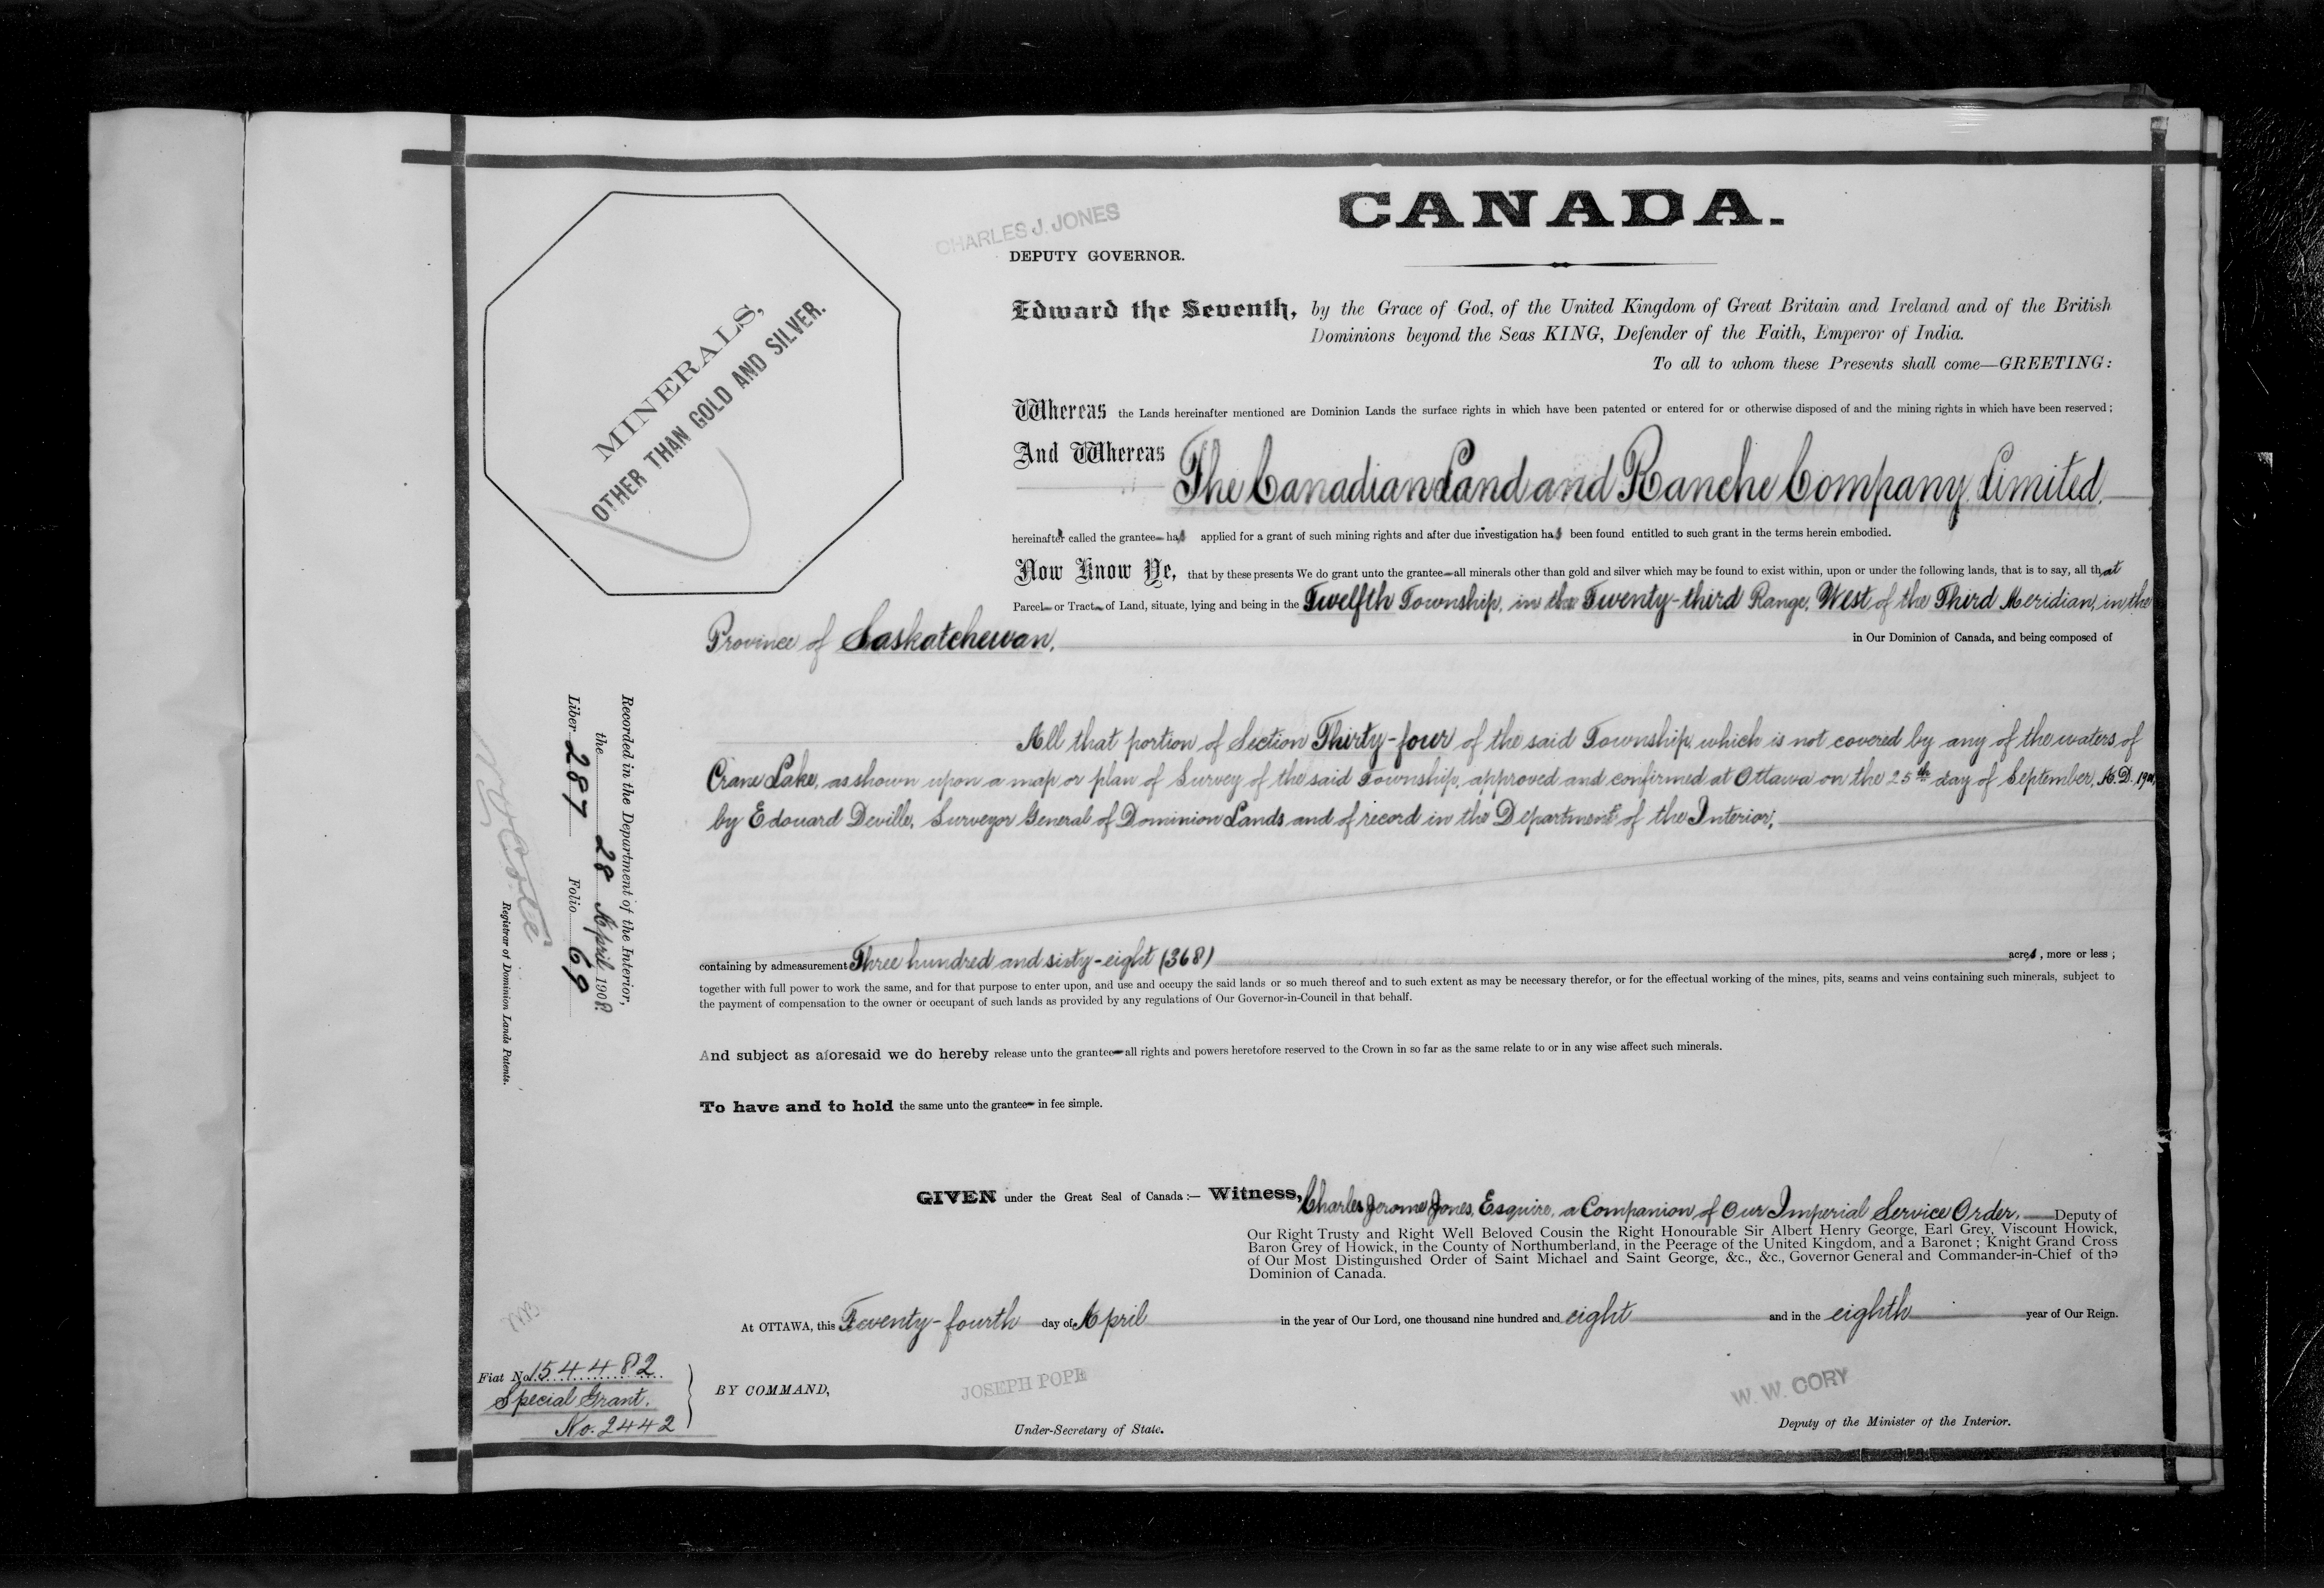 CANADA.
CHARLES J. JONES
DEPUTY GOVERNOR.
MINERALS,
OTHER THAN GOLD AND SILVER.
Edward the Seventh, by the Grace of God, of the United Kingdom of Great Britain and Ireland and of the British
Dominions beyond the Seas KING, Defender of the Faith, Emperor of India.
To all to whom these Presents shall come—GREETING:
Whereas the Lands hereinafter mentioned are Dominion Lands the surface rights in which have been patented or entered for or otherwise disposed of and the mining rights in which have been reserved;
And Whereas The Canadian Land and Ranche Company Limited,
hereinafter called the grantee has applied for a grant of such mining rights and after due investigation has been found entitled to such grant in the terms herein embodied.
Now Know Ye, that by these presents We do grant unto the grantee all minerals other than gold and silver which may be found to exist within, upon or under the following lands, that is to say, all that
Parcel or Tract of Land, situate, lying and being in the Twelfth Township, in the Twenty-third Range, West of the Third Meridian, in the
Province of Saskatchewan, in Our Dominion of Canada, and being composed of
All that portion of Section Thirty-four of the said Township, which is not covered by any of the waters of
Crane Lake, as shown upon a map or plan of Survey of the said Township, approved and confirmed at Ottawa on the 25th day of September, A.D.
by Edouard Deville, Surveyor General of Dominion Lands and of record in the Department of the Interior,
containing by admeasurement Three hundred and sixty-eight (368) acres, more or less;
together with full power to work the same, and for that purpose to enter upon, and use and occupy the said lands or so much thereof and to such extent as may be necessary therefor, or for the effectual working of the mines, pits, seams and veins containing such minerals, subject to
the payment of compensation to the owner or occupant of such lands as provided by any regulations of Our Governor-in-Council in that behalf.
And subject as aforesaid we do hereby release unto the grantee all rights and powers heretofore reserved to the Crown in so far as the same relate to or in any wise affect such minerals.
To have and to hold the same unto the grantee in fee simple.
GIVEN under the Great Seal of Canada:— Witness, Charles Jerome Jones, Esquire, a Companion of Our Imperial Service Order, Deputy of
Our Right Trusty and Right Well Beloved Cousin the Right Honourable Sir Albert Henry George, Earl Grey, Viscount Howick,
Baron Grey of Howick, in the County of Northumberland, in the Peerage of the United Kingdom, and a Baronet; Knight Grand Cross
of Our Most Distinguished Order of Saint Michael and Saint George, &c., &c., Governor General and Commander-in-Chief of the
Dominion of Canada.
At OTTAWA, this Twenty-fourth day of April in the year of Our Lord, one thousand nine hundred and eight and in the eighth year of Our Reign.
BY COMMAND,
JOSEPH POPE
Under-Secretary of State.
W. W. CORY
Deputy of the Minister of the Interior.
Fiat No. 154482
Special Grant.
No. 2442
Recorded in the Department of the Interior,
the 28 April 1908
Liber 287 Folio 69
Registrar of Dominion Lands Patents.